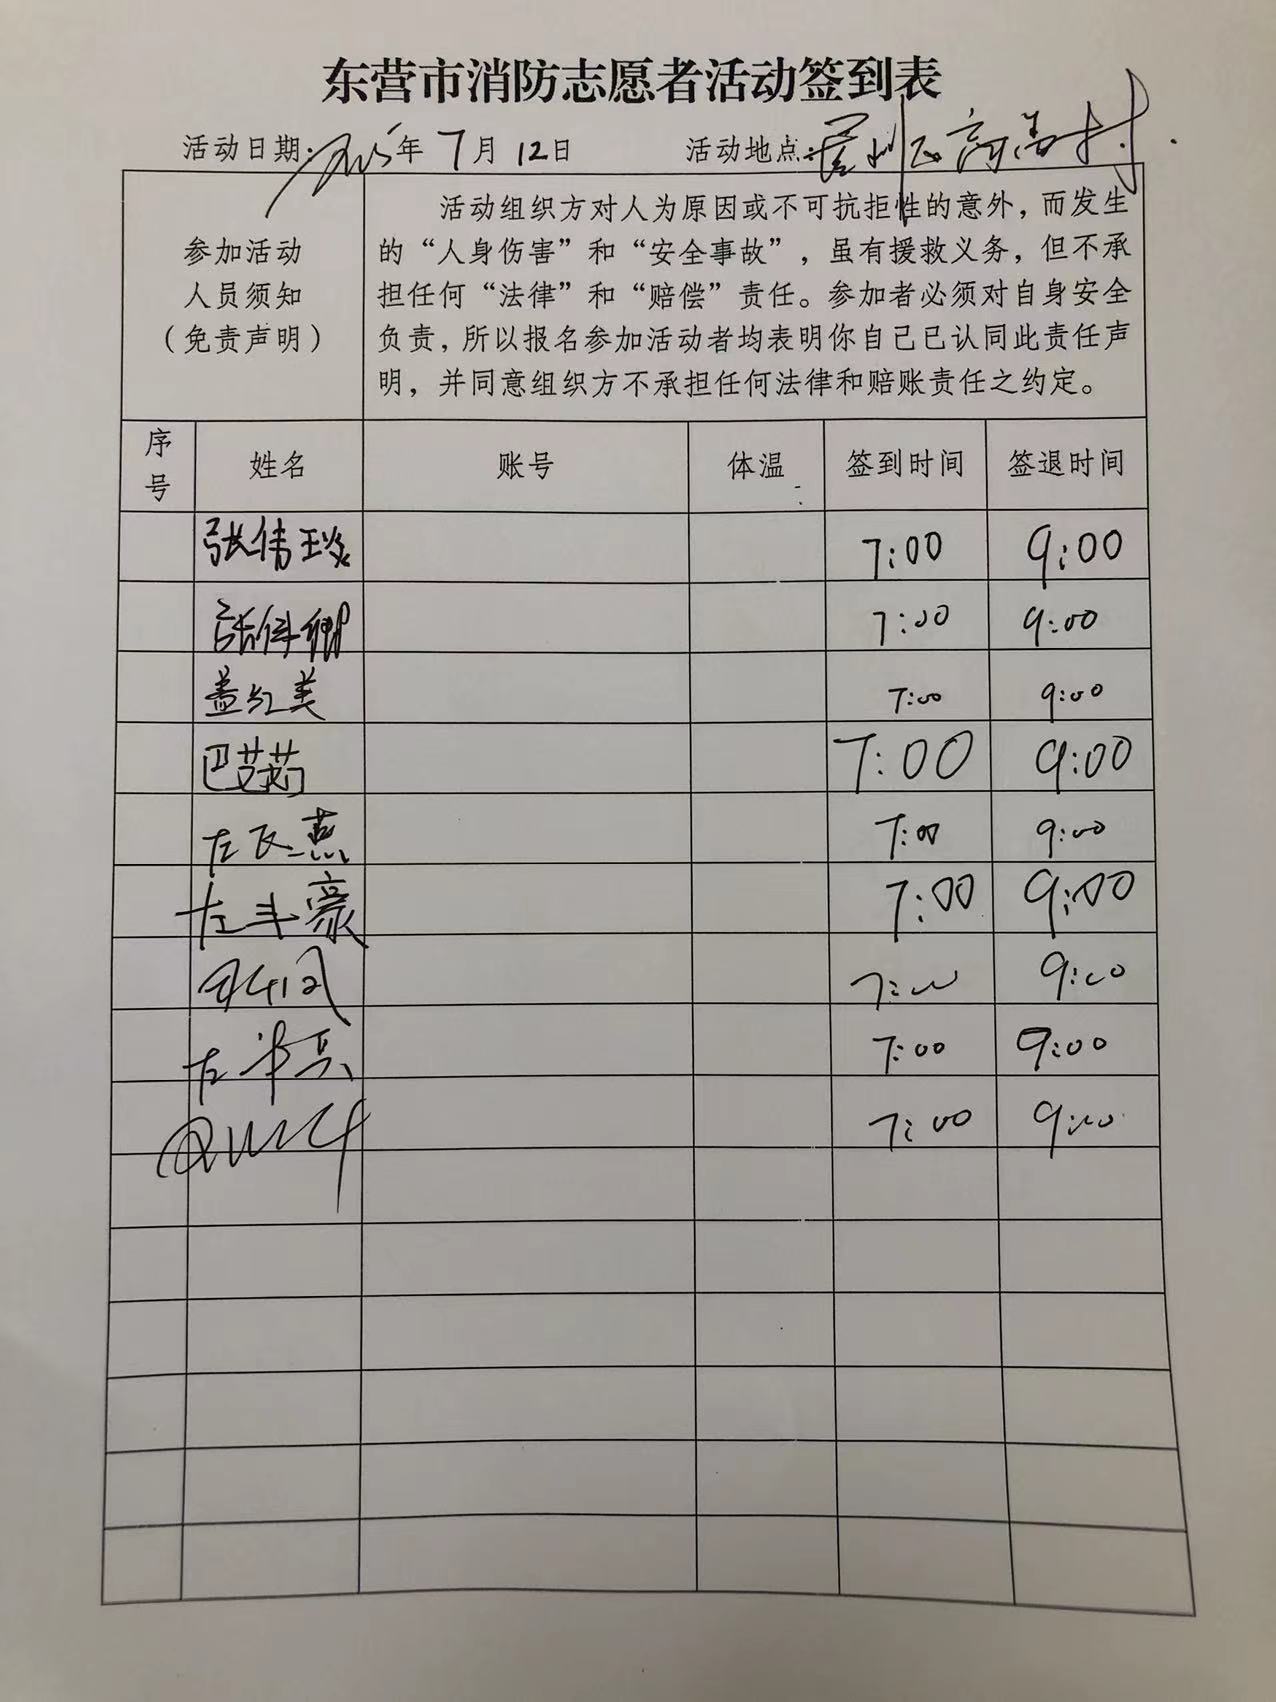 东营市消防志愿者活动签到表
活动日期: 2025年7月12日 活动地点:
参加活动
人员须知
(免责声明)
活动组织方对人为原因或不可抗拒性的意外，而发生
的“人身伤害”和“安全事故”，虽有援救义务，但不承
担任何“法律”和“赔偿”责任。参加者必须对自身安全
负责，所以报名参加活动者均表明你自己已认同此责任声
明，并同意组织方不承担任何法律和赔账责任之约定。
序号 姓名 账号 体温 签到时间 签退时间
张伟 7:00 9:00
7:00 9:00
盖红美 7:00 9:00
巴艾茹 7:00 9:00
左 燕 7:00 9:00
左丰豪 7:00 9:00
7:00 9:00
左 兵 7:00 9:00
7:00 9:00